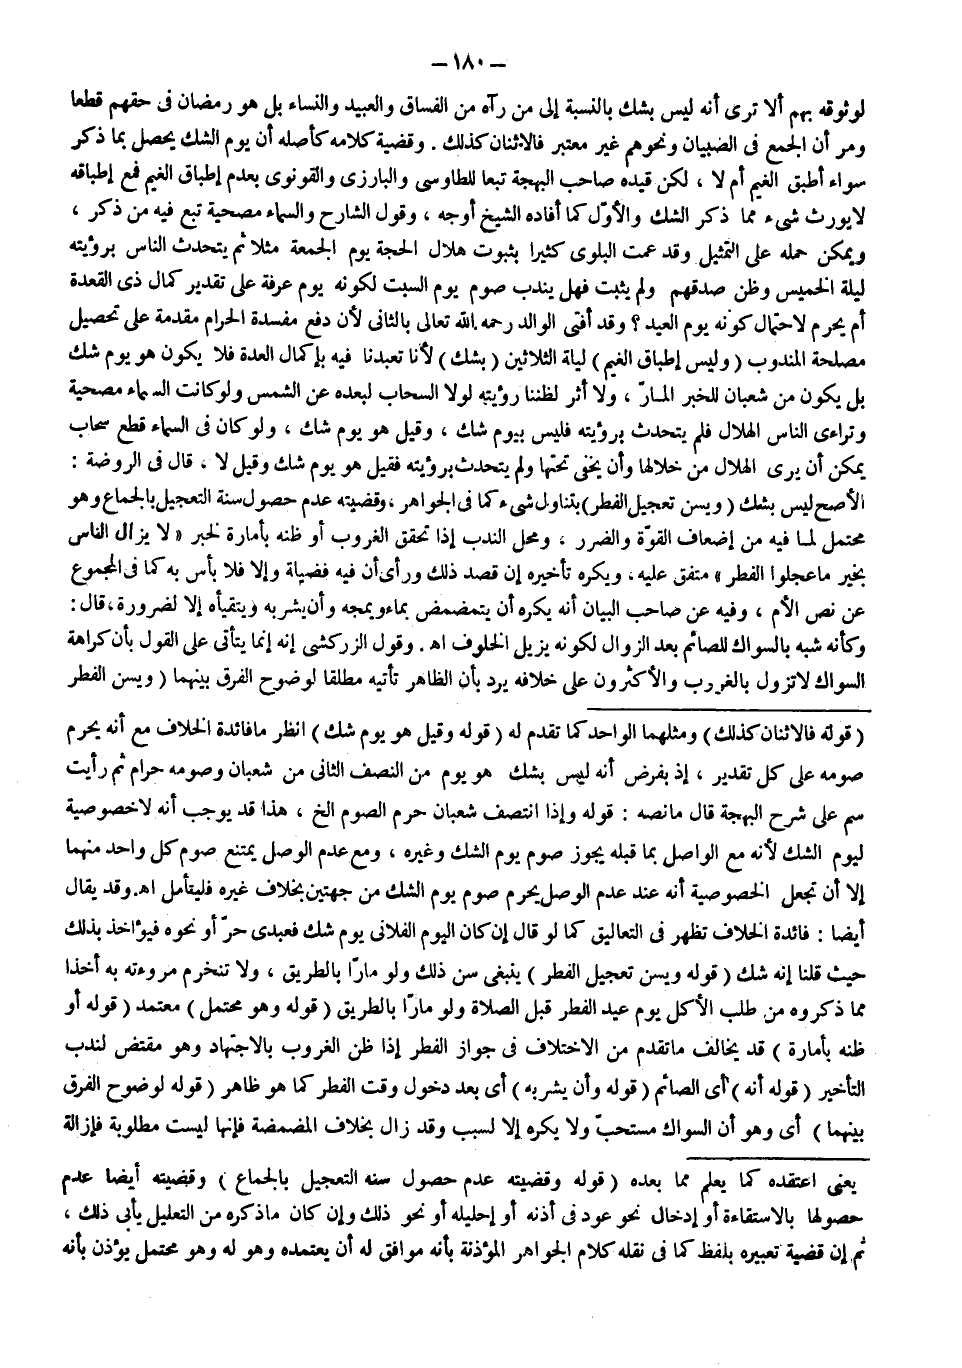 – ١٨٠ –
لوثوقه بهم ألا ترى أنه ليس بشك بالنسبة إلى من رآه من الفساق والعبيد والنساء بل هو رمضان فى حقهم قطعا
ومر أن الجمع فى الضبيان ونحوهم غير معتبر فالاثنان كذلك . وقضية كلامه كأصله أن يوم الشك يحصل بما ذكر
سواء أطبق الغيم أم لا ، لكن قيده صاحب البهجة تبعا للطاوسى والبارزى والقونوى بعدم إطباق الغيم فمع إطباقه
لايورث شىء مما ذكر الشك والأوّل كما أفاده الشيخ أوجه ، وقول الشارح والسماء مصحية تبع فيه من ذكر ،
ويمكن حمله على التمثيل وقد عمت البلوى كثيرا بثبوت هلال الحجة يوم الجمعة مثلا ثم يتحدث الناس برؤيته
ليلة الخميس وظن صدقهم ولم يثبت فهل يندب صوم يوم السبت لكونه يوم عرفة على تقدير كمال ذى القعدة
أم يحرم لاحتمال كونه يوم العيد ؟ وقد أفتى الوالد رحمه الله تعالى بالثانى لأن دفع مفسدة الحرام مقدمة على تحصيل
مصلحة المندوب ( وليس إطباق الغيم ) ليلة الثلاثين ( بشك ) لأنا تعبدنا فيه بإكمال العدة فلا يكون هو يوم شك
بل يكون من شعبان للخبر المـارّ ، ولا أثر لظننا رؤيته لولا السحاب لبعده عن الشمس ولو كانت السماء مصحية
وتراءى الناس الهلال فلم يتحدث برؤيته فليس بيوم شك ، وقيل هو يوم شك ، ولو كان فى السماء قطع سحاب
يمكن أن يرى الهلال من خلالها وأن يخفى تحتها ولم يتحدث برؤيته فقيل هو يوم شك وقيل لا ، قال فى الروضة :
الأصح ليس بشك ( ويسن تعجيل الفطر ) بتناول شىء كما فى الجواهر ، وقضيته عدم حصول سنة التعجيل بالجماع وهو
محتمل لمـا فيه من إضعاف القوّة والضرر ، ومحل الندب إذا تحقق الغروب أو ظنه بأمارة لخبر « لا يزال الناس
بخير ماعجلوا الفطر » متفق عليه، ويكره تأخيره إن قصد ذلك ورأى أن فيه فضيلة وإلا فلا بأس به كما فى المجموع
عن نص الأم ، وفيه عن صاحب البيان أنه يكره أن يتمضمض بماء ويمجه وأن يشربه ويتقيأه إلا لضرورة ، قال :
وكأنه شبه بالسواك للصائم بعد الزوال لكونه يزيل الخلوف اه‍. وقول الزركشى إنه إنما يتأتى على القول بأن كراهة
السواك لاتزول بالغروب والأكثرون على خلافه يرد بأن الظاهر تأتيه مطلقا لوضوح الفرق بينهما ( ويسن الفطر
( قوله فالاثنان كذلك ) ومثلهما الواحد كما تقدم له ( قوله وقيل هو يوم شك ) انظر مافائدة الخلاف مع أنه يحرم
صومه على كل تقدير ، إذ بفرض أنه ليس بشك هو يوم من النصف الثانى من شعبان وصومه حرام ثم رأيت
سم على شرح البهجة قال مانصه : قوله وإذا انتصف شعبان حرم الصوم الخ ، هذا قد يوجب أنه لاخصوصية
ليوم الشك لأنه مع الواصل بما قبله يجوز صوم يوم الشك وغيره ، ومع عدم الوصل يمتنع صوم كل واحد منهما
إلا أن تجعل الخصوصية أنه عند عدم الوصل يحرم صوم يوم الشك من جهتين بخلاف غيره فليتأمل اه‍. وقد يقال
أيضا : فائدة الخلاف تظهر فى التعاليق كما لو قال إن كان اليوم الفلانى يوم شك فعبدى حرّ أو نحوه فيؤاخذ بذلك
حيث قلنا إنه شك ( قوله ويسن تعجيل الفطر ) ينبغى سن ذلك ولو مارّا بالطريق ، ولا تنخرم مروءته به أخذا
مما ذكروه من طلب الأكل يوم عيد الفطر قبل الصلاة ولو مارّا بالطريق ( قوله وهو محتمل ) معتمد ( قوله أو
ظنه بأمارة ) قد يخالف ماتقدم من الاختلاف فى جواز الفطر إذا ظن الغروب بالاجتهاد وهو مقتض لندب
التأخير ( قوله أنه ) أى الصائم ( قوله وأن يشربه ) أى بعد دخول وقت الفطر كما هو ظاهر ( قوله لوضوح الفرق
بينهما ) أى وهو أن السواك مستحبّ ولا يكره إلا لسبب وقد زال بخلاف المضمضة فإنها ليست مطلوبة فإزالة
يعنى اعتقده كما يعلم مما بعده ( قوله وقضيته عدم حصول سنه التعجيل بالجماع ) وقضيته أيضا عدم
حصولها بالاستقاءة أو إدخال نحو عود فى أذنه أو إحليله أو نحو ذلك وإن كان ماذكره من التعليل يأبى ذلك ،
ثم إن قضية تعبيره بلفظ كما فى نقله كلام الجواهر المؤذنة بأنه موافق له أن يعتمده وهو له وهو محتمل يؤذن بأنه